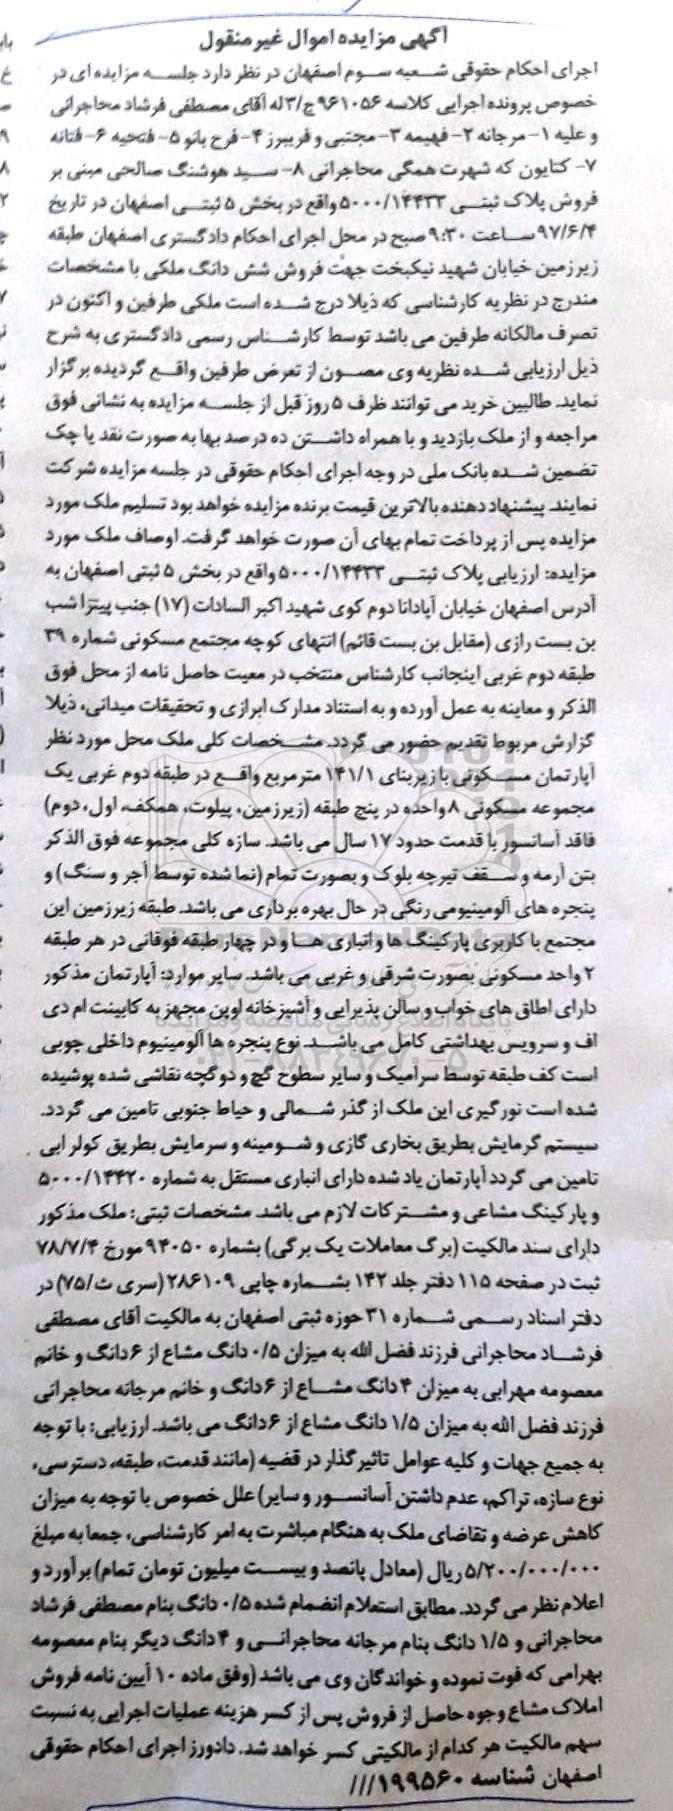 آگهی مزایده اموال غیر منقول
اجرای احکام حقوقی شعبه سوم اصفهان در نظر دارد جلسه مزایده ای در
خصوص پرونده اجرایی کلاسه ۹۶۱۰۵۶ج/۳ له آقای مصطفی فرشاد محاجرانی
و علیه ۱- مرجانه ۲- فهیمه ۳- مجتبی و فریبرز ۴- فرح بانو ۵- فتحیه ۶- فتانه
۷- کتایون که شهرت همگی محاجرانی ۸- سید هوشنگ صالحی مبنی بر
فروش پلاک ثبتی ۵۰۰۰/۱۴۴۳۳ واقع در بخش ۵ ثبتی اصفهان در تاریخ
۹۷/۶/۴ ساعت ۹:۳۰ صبح در محل اجرای احکام دادگستری اصفهان طبقه
زیرزمین خیابان شهید نیکبخت جهت فروش شش دانگ ملکی با مشخصات
مندرج در نظریه کارشناسی که ذیلا درج شده است ملکی طرفین و اکنون در
تصرف مالکانه طرفین می باشد توسط کارشناس رسمی دادگستری به شرح
ذیل ارزیابی شده نظریه وی مصون از تعرض طرفین واقع گردیده برگزار
نماید. طالبین خرید می توانند ظرف ۵ روز قبل از جلسه مزایده به نشانی فوق
مراجعه و از ملک بازدید و با همراه داشتن ده درصد بها به صورت نقد یا چک
تضمین شده بانک ملی در وجه اجرای احکام حقوقی در جلسه مزایده شرکت
نمایند. پیشنهاد دهنده بالاترین قیمت برنده مزایده خواهد بود تسلیم ملک مورد
مزایده پس از پرداخت تمام بهای آن صورت خواهد گرفت. اوصاف ملک مورد
مزایده: ارزیابی پلاک ثبتی ۵۰۰۰/۱۴۴۳۳ واقع در بخش ۵ ثبتی اصفهان به
آدرس اصفهان خیابان آپادانا دوم کوی شهید اکبر السادات (۱۷) جنب پیتزا شب
بن بست رازی (مقابل بن بست قائم) انتهای کوچه مجتمع مسکونی شماره ۳۹
طبقه دوم غربی اینجانب کارشناس منتخب در معیت حاصل نامه از محل فوق
الذکر و معاینه به عمل آورده و به استناد مدارک ابرازی و تحقیقات میدانی، ذیلا
گزارش مربوط تقدیم حضور می گردد. مشخصات کلی ملک محل مورد نظر
آپارتمان مسکونی با زیربنای ۱۴۱/۱ مترمربع واقع در طبقه دوم غربی یک
مجموعه مسکونی ۸ واحده در پنج طبقه (زیرزمین، پیلوت، همکف، اول، دوم)
فاقد آسانسور با قدمت حدود ۱۷ سال می باشد. سازه کلی مجموعه فوق الذکر
بتن آرمه و سقف تیرچه بلوک و بصورت تمام (نما شده توسط آجر و سنگ) و
پنجره های آلومینیومی رنگی در حال بهره برداری می باشد. طبقه زیرزمین این
مجتمع با کاربری پارکینگ ها و انباری ها و در چهار طبقه فوقانی در هر طبقه
۲ واحد مسکونی بصورت شرقی و غربی می باشد. سایر موارد: آپارتمان مذکور
دارای اطاق های خواب و سالن پذیرایی و آشپزخانه اوپن مجهز به کابینت ام دی
اف و سرویس بهداشتی کامل می باشد. نوع پنجره ها آلومینیوم داخلی چوبی
است کف طبقه توسط سرامیک و سایر سطوح گچ و دوگچه نقاشی شده پوشیده
شده است نورگیری این ملک از گذر شمالی و حیاط جنوبی تامین می گردد.
سیستم گرمایش بطریق بخاری گازی و شومینه و سرمایش بطریق کولر ابی
تامین می گردد آپارتمان یاد شده دارای انباری مستقل به شماره ۵۰۰۰/۱۴۴۲۰
و پارکینگ مشاعی و مشترکات لازم می باشد. مشخصات ثبتی: ملک مذکور
دارای سند مالکیت (برگ معاملات یک برگی) بشماره ۹۴۰۵۰ مورخ ۷۸/۷/۴
ثبت در صفحه ۱۱۵ دفتر جلد ۱۴۲ بشماره چاپی ۲۸۶۱۰۹ (سری ث/۷۵) در
دفتر اسناد رسمی شماره ۳۱ حوزه ثبتی اصفهان به مالکیت آقای مصطفی
فرشاد محاجرانی فرزند فضل الله به میزان ۰/۵ دانگ مشاع از ۶دانگ و خانم
معصومه مهرابی به میزان ۴ دانگ مشاع از ۶دانگ و خانم مرجانه محاجرانی
فرزند فضل الله به میزان ۱/۵ دانگ مشاع از ۶دانگ می باشد. ارزیابی: با توجه
به جمیع جهات و کلیه عوامل تاثیرگذار در قضیه (مانند قدمت، طبقه، دسترسی،
نوع سازه، تراکم، عدم داشتن آسانسور و سایر) علل خصوص با توجه به میزان
کاهش عرضه و تقاضای ملک به هنگام مباشرت به امر کارشناسی، جمعا به مبلغ
۵/۲۰۰/۰۰۰/۰۰۰ ریال (معادل پانصد و بیست میلیون تومان تمام) برآورد و
اعلام نظر می گردد. مطابق استعلام انضمام شده ۰/۵ دانگ بنام مصطفی فرشاد
محاجرانی و ۱/۵ دانگ بنام مرجانه محاجرانی و ۴ دانگ دیگر بنام معصومه
بهرامی که فوت نموده و خواندگان وی می باشد (وفق ماده ۱۰ آیین نامه فروش
املاک مشاع وجوه حاصل از فروش پس از کسر هزینه عملیات اجرایی به نسبت
سهم مالکیت هر کدام از مالکیتی کسر خواهد شد. دادورز اجرای احکام حقوقی
اصفهان شناسه ۱۹۹۵۶۰///